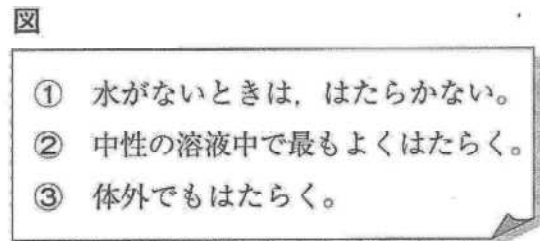 図
① 水がないときは，はたらかない。
② 中性の溶液中で最もよくはたらく。
③ 体外でもはたらく。